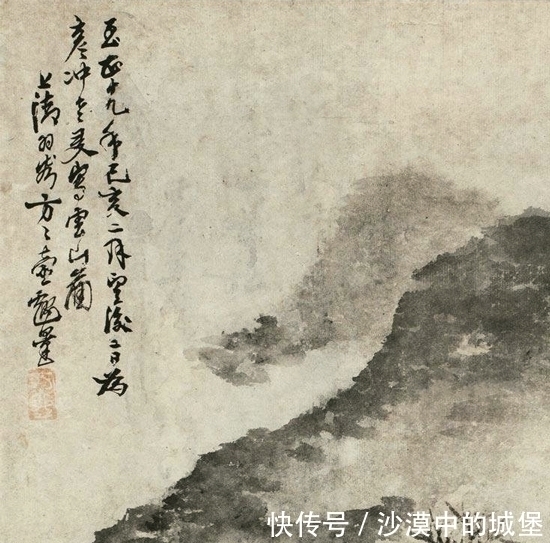 至正十九年己亥二月望後二日為
彥冲老寫雲山圖
上清羽客方方壺戲筆
快传号 / 沙漠中的城堡